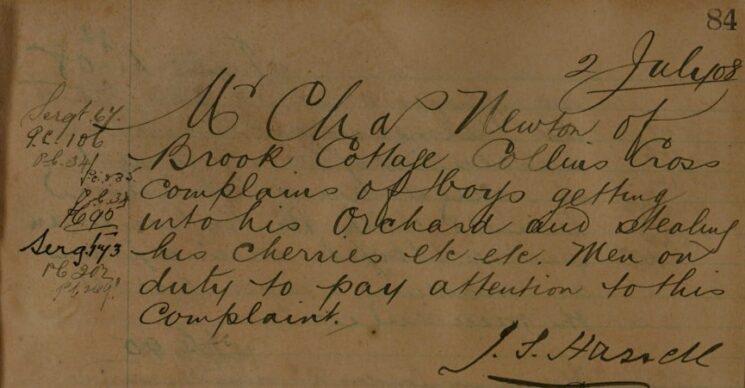 84
2 July 08
Mr Chas Newton of
Brook Cottage Collins Cross
complains of boys getting
into his Orchard and stealing
his cherries etc etc. Men on
duty to pay attention to this
Complaint.
Sergt 67.
P.C. 106
P.C. 341
P.C. 335
Sergt 173
P.C. 202